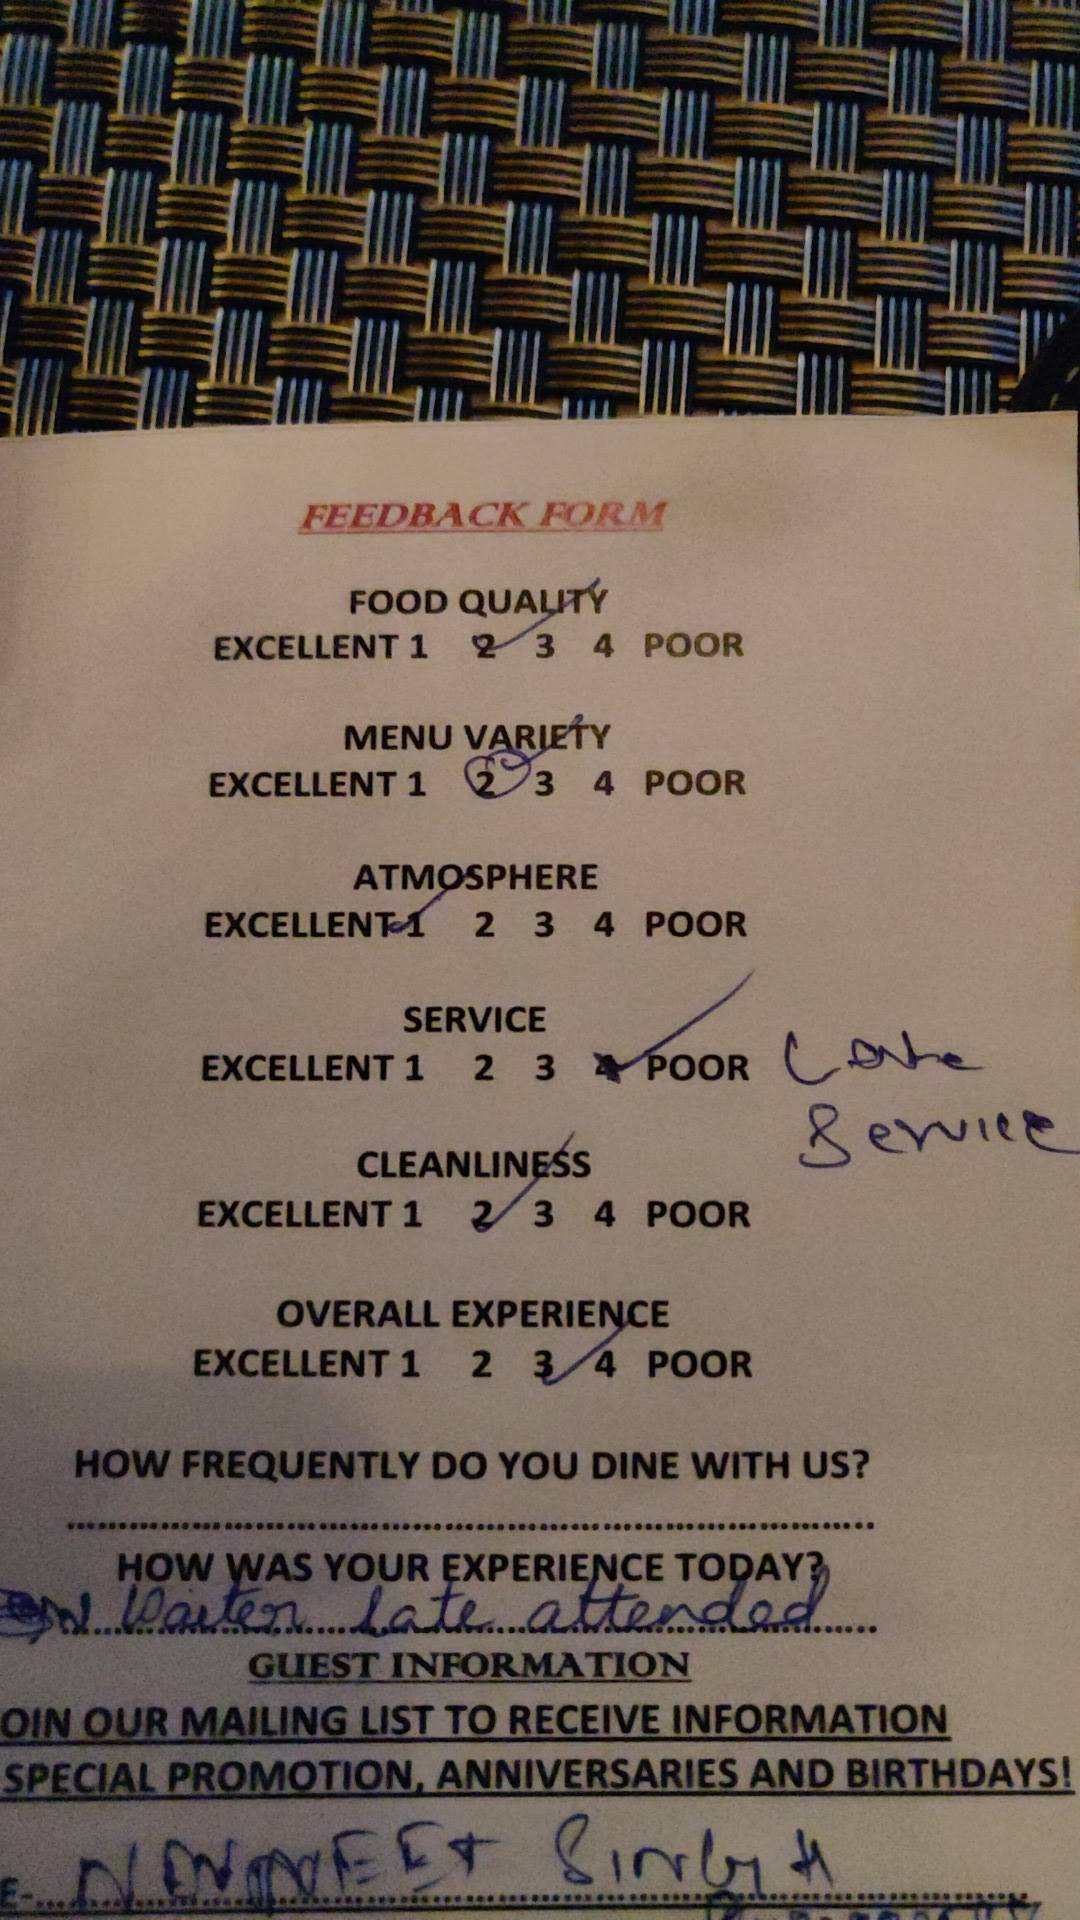 FEEDBACK FORM
FOOD QUALITY
EXCELLENT 1 2 3 4 POOR
MENU VARIETY
EXCELLENT 1 2 3 4 POOR
ATMOSPHERE
EXCELLENT 1 2 3 4 POOR
SERVICE
EXCELLENT 1 2 3 4 POOR Late
Service
CLEANLINESS
EXCELLENT 1 2 3 4 POOR
OVERALL EXPERIENCE
EXCELLENT 1 2 3 4 POOR
HOW FREQUENTLY DO YOU DINE WITH US?
HOW WAS YOUR EXPERIENCE TODAY?
Waiter late attended
GUEST INFORMATION
OIN OUR MAILING LIST TO RECEIVE INFORMATION
SPECIAL PROMOTION, ANNIVERSARIES AND BIRTHDAYS!
E- SINGH